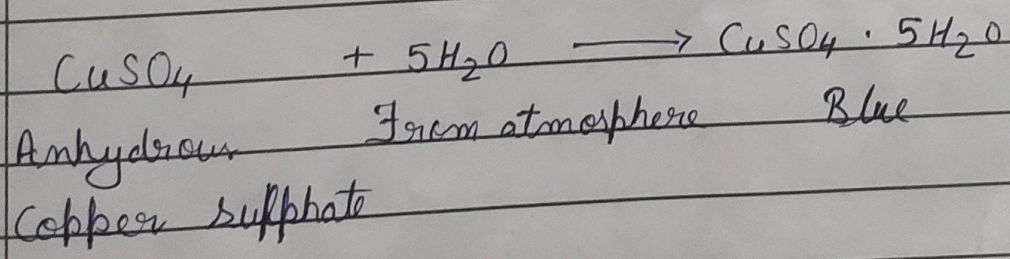 CuSO4 + 5H2O ⟶ CuSO4 · 5H2O
Anhydrous From atmosphere Blue
Copper sulphate